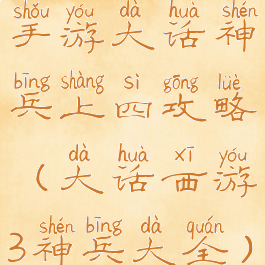 shǒu yóu dà huà shén
手游大话神
bīng shàng sì gōng lüè
兵上四攻略
dà huà xī yóu
(大话西游
shén bīng dà quán
3神兵大全)